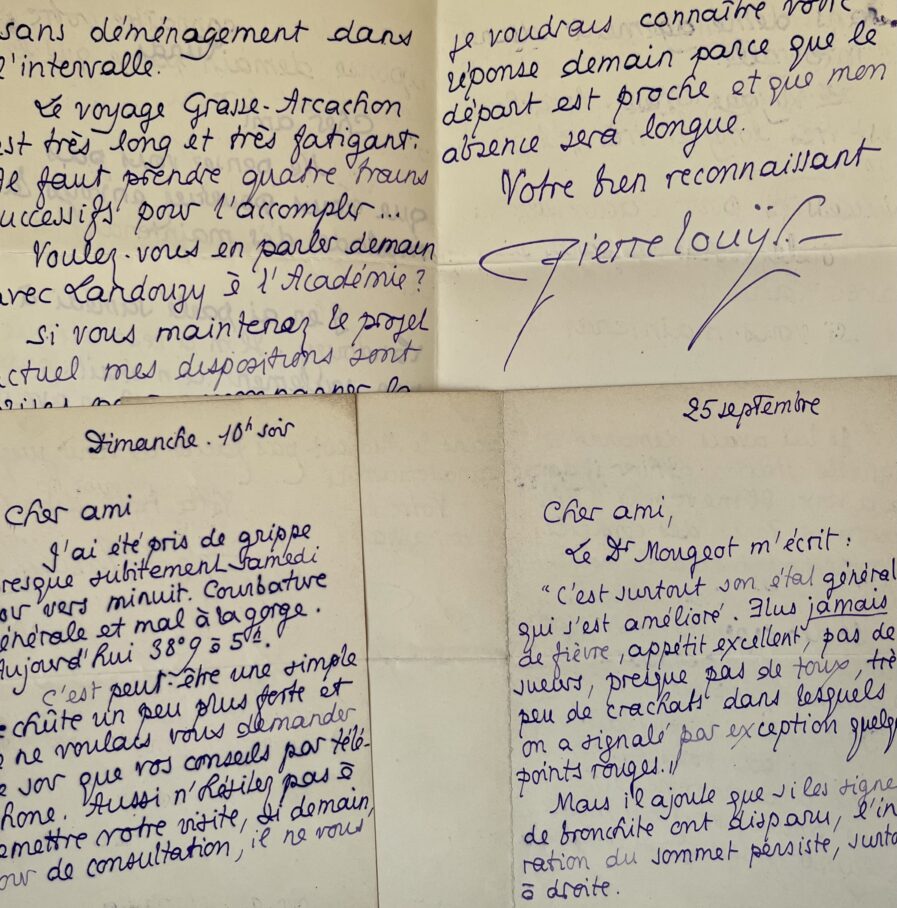 sans déménagement dans
l'intervalle.
Le voyage Grasse-Arcachon
est très long et très fatigant.
Il faut prendre quatre trains
successifs pour l'accomplir...
Voulez-vous en parler demain
avec Landouzy à l'Académie?
Si vous maintenez le projet
actuel mes dispositions sont
je voudrais connaître votre
réponse demain parce que le
départ est proche et que mon
absence sera longue.
Votre bien reconnaissant
Pierre Louÿs
Dimanche. 10h soir
Cher ami
J'ai été pris de grippe
presque subitement samedi
soir vers minuit. Courbature
générale et mal à la gorge.
Aujourd'hui 38°9 à 5h.
C'est peut-être une simple
rechûte un peu plus forte et
je ne voulais vous demander
ce soir que vos conseils par télé-
phone. Aussi n'hésitez pas à
remettre votre visite, si demain,
jour de consultation, il ne vous
25 septembre
Cher ami,
Le Dr Mougeot m'écrit :
"C'est surtout son état général
qui s'est amélioré. Plus jamais
de fièvre, appétit excellent, pas de
sueurs, presque pas de toux, très
peu de crachats dans lesquels
on a signalé par exception quelq
points rouges."
Mais il ajoute que si les signe
de bronchite ont disparu, l'in
ration du sommet persiste, surto
à droite.